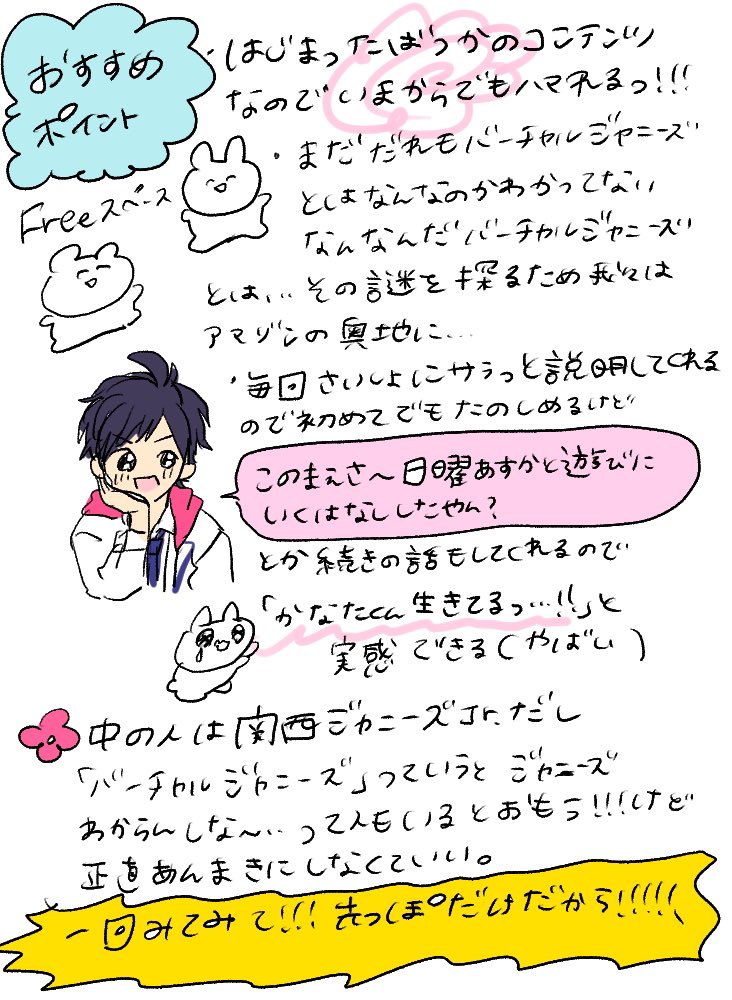 おすすめ
ポイント
・はじまったばっかのコンテンツ
なのでいまからでもハマれるっ!!!
Freeスペース
・まだだれもバーチャルジャニーズ
とはなんなのかわかってない
なんなんだバーチャルジャニーズ
とは... その謎を探るため我々は
アマゾンの奥地に...
・毎回さいしょにサラっと説明してくれる
ので初めてでもたのしめるけど
このまえさ〜日曜あすかと遊びに
いくはなししたやん?
とか続きの話もしてくれるので
「かなたくん生きてるっ...!!」と
実感できる(やばい)
中の人は関西ジャニーズJr.だし
「バーチャルジャニーズ」っていうとジャニーズ
わからんしな〜..って人もいるとおもう!!!けど
正直あんまきにしなくていい。
一回みてみて!!! きっぽだけだから!!!!!